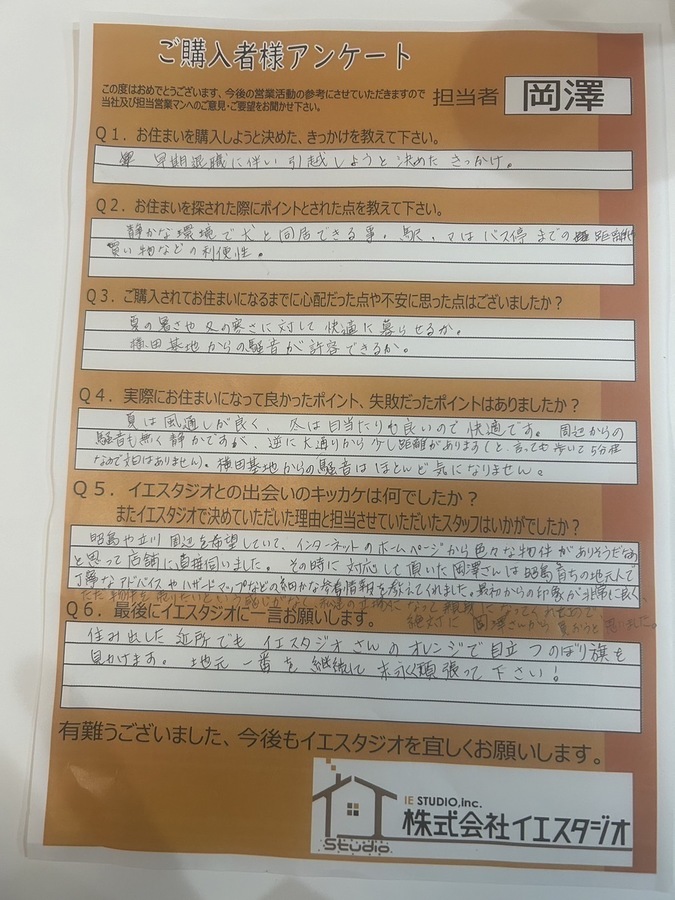 ご購入者様アンケート
この度はおめでとうございます、今後の営業活動の参考にさせていただきますので
当社及び担当営業マンへのご意見・ご要望をお聞かせ下さい。
担当者 岡澤
Q1．お住まいを購入しようと決めた、きっかけを教えて下さい。
早期退職に伴い引越しようと決めたきっかけ。
Q2．お住まいを探された際にポイントとされた点を教えて下さい。
静かな環境で犬と同居できる事。駅、又はバス停までの距離や
買い物などの利便性。
Q3．ご購入されてお住まいになるまでに心配だった点や不安に思った点はございましたか？
夏の暑さや冬の寒さに対して快適に暮らせるか。
横田基地からの騒音が許容できるか。
Q4．実際にお住まいになって良かったポイント、失敗だったポイントはありましたか？
夏は風通しが良く、冬は日当たりも良いので快適です。周辺からの
騒音も無く静かですが、逆に大通りから少し距離があります(と言っても歩いて5分程
なので苦はありません)。横田基地からの騒音はほとんど気になりません。
Q5．イエスタジオとの出会いのキッカケは何でしたか？
またイエスタジオで決めていただいた理由と担当させていただいたスタッフはいかがでしたか？
昭島や立川周辺を希望していて、インターネットのホームページから色々な物件がありそうだなぁ
と思って店舗に直接伺いました。その時に対応して頂いた岡澤さんは昭島育ちの地元人で
丁寧なアドバイスやハザードマップなどの細かな参考情報を教えてくれました。最初からの印象が非常に良く、
ただ物件を売りたいという感じがなく、私達の立場になって親身になってくれたので
絶対に岡澤さんから買おうと思いました。
Q6．最後にイエスタジオに一言お願いします。
住み出した近所でもイエスタジオさんのオレンジで目立つのぼり旗を
見かけます。地元一番を継続して末永く頑張って下さい！
有難うございました、今後もイエスタジオを宜しくお願いします。
IE STUDIO,inc.
株式会社イエスタジオ
Studio